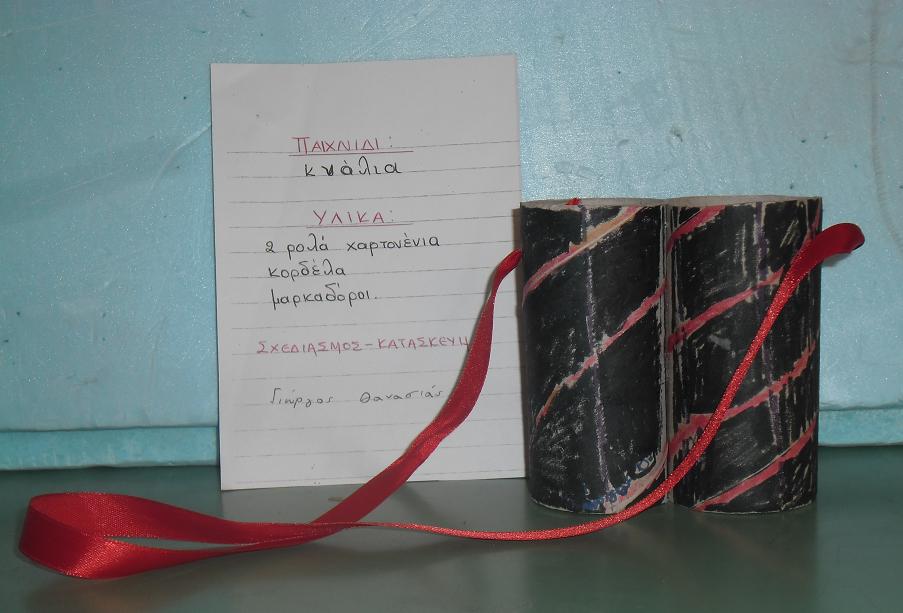 ΠΑΙΧΝΙΔΙ:
κυάλια
ΥΛΙΚΑ:
2 ρολά χαρτονένια
κορδέλα
μαρκαδόροι.
ΣΧΕΔΙΑΣΜΟΣ-ΚΑΤΑΣΚΕΥΗ
Γιώργος Θανασιάς